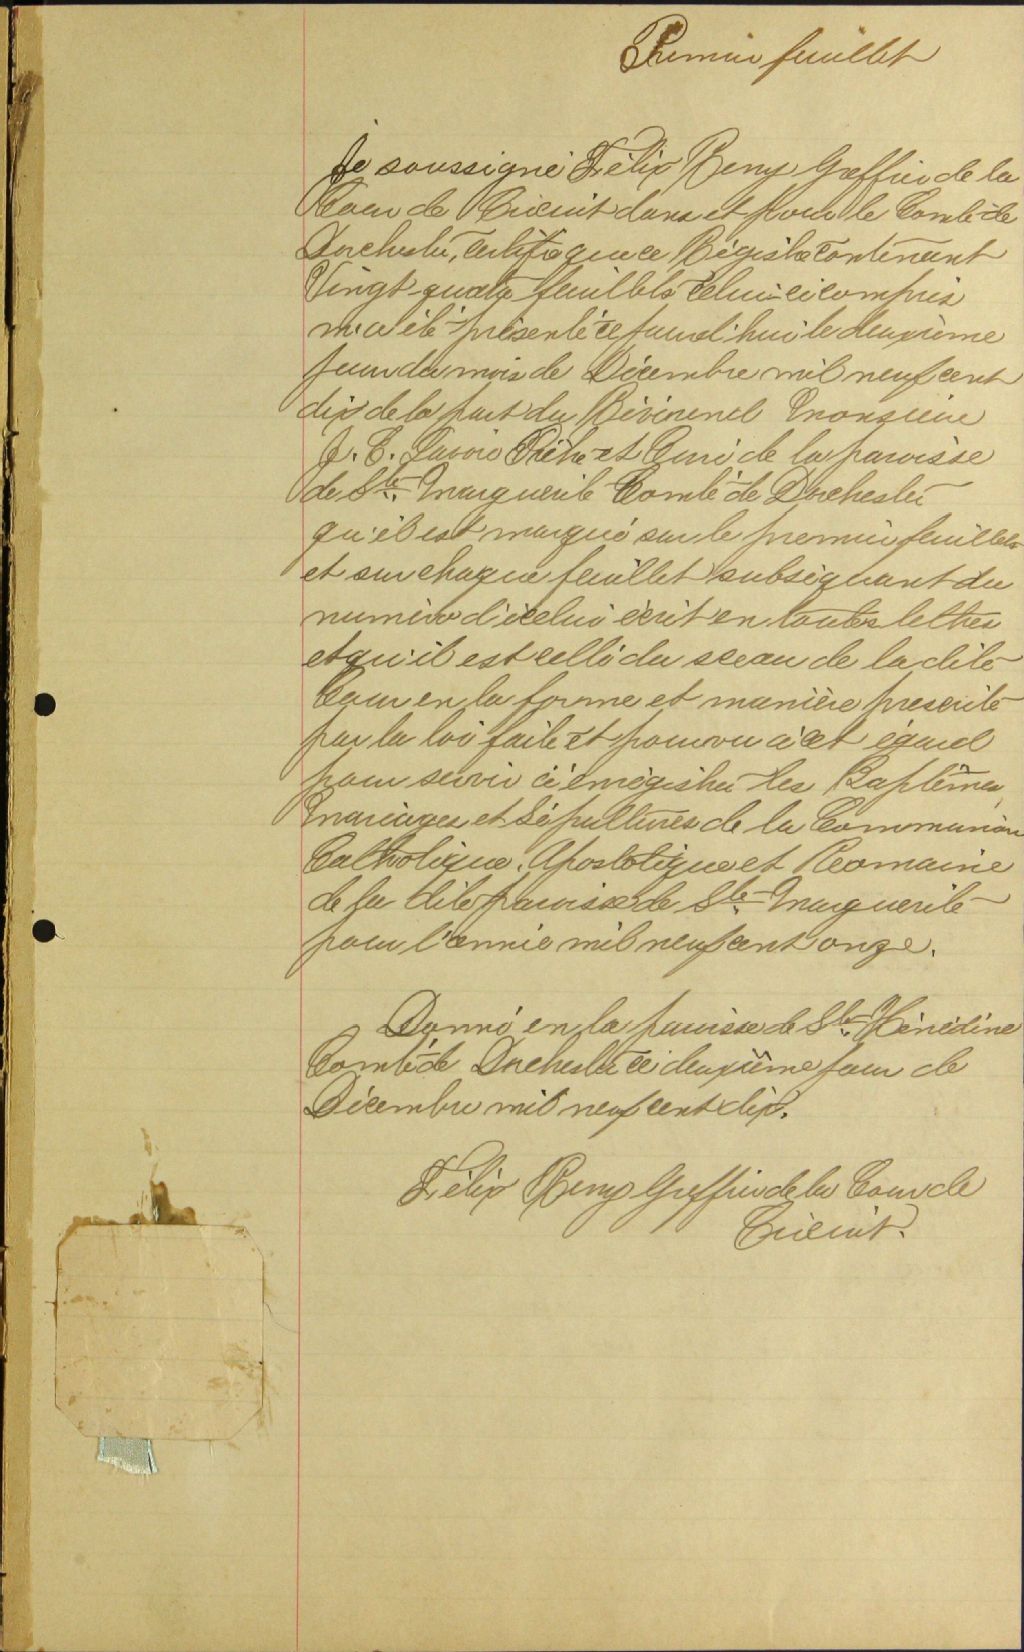 Premier feuillet
Je soussigné Félix Remy Greffier de la
Cour de Circuit dans et pour le Comté de
Dorchester, certifie que ce Régistre contenant
Vingt quatre feuillets celui-ci compris
m'a été présenté ce jourd'hui le deuxième
jour du mois de Décembre mil neuf cent
dix de la part du Révérend Monsieur
J. E. Lavoie Prêtre et Curé de la paroisse
de Ste Marguerite Comté de Dorchester
qu'il est marqué sur le premier feuillet
et sur chaque feuillet subséquant du
numéro d'icelui écrit en toutes lettres
et qu'il est cellé du sceau de la dite
Cour en la forme et manière prescrite
par la loi faite et pourvu à cet égard
pour servir à enrégistrer les Baptêmes,
Mariages et Sépultures de la Communion
Catholique, Apostolique et Romaine
de la dite paroisse de Ste Marguerite
pour l'année mil neuf cent onze.
Donné en la paroisse de Ste Hénédine
Comté de Dorchester ce deuxième jour de
Décembre mil neuf cent dix.
Félix Remy Greffier de la Cour de
Circuit.